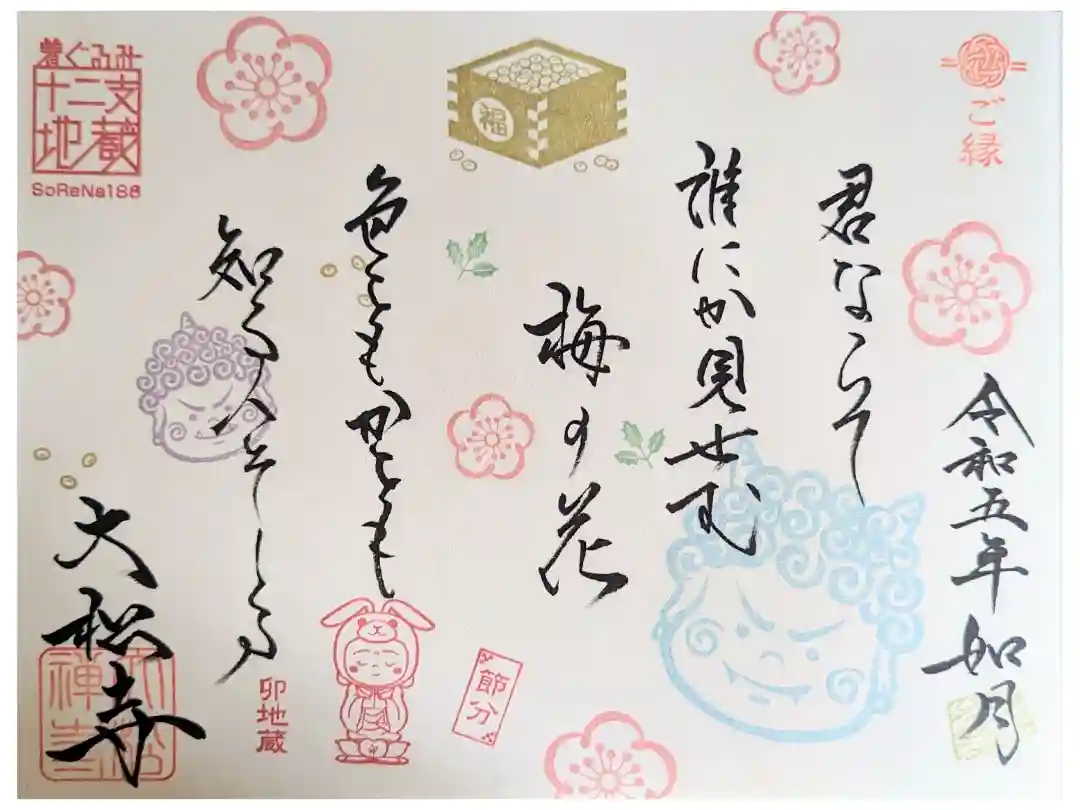 ご縁
令和五年 如月
君ならて
誰にか見せむ
梅の花
色をもかをも
知る人そしる
大松寺
福
着ぐるみ
十二支
地蔵
SoReNa188
卯地蔵
節分